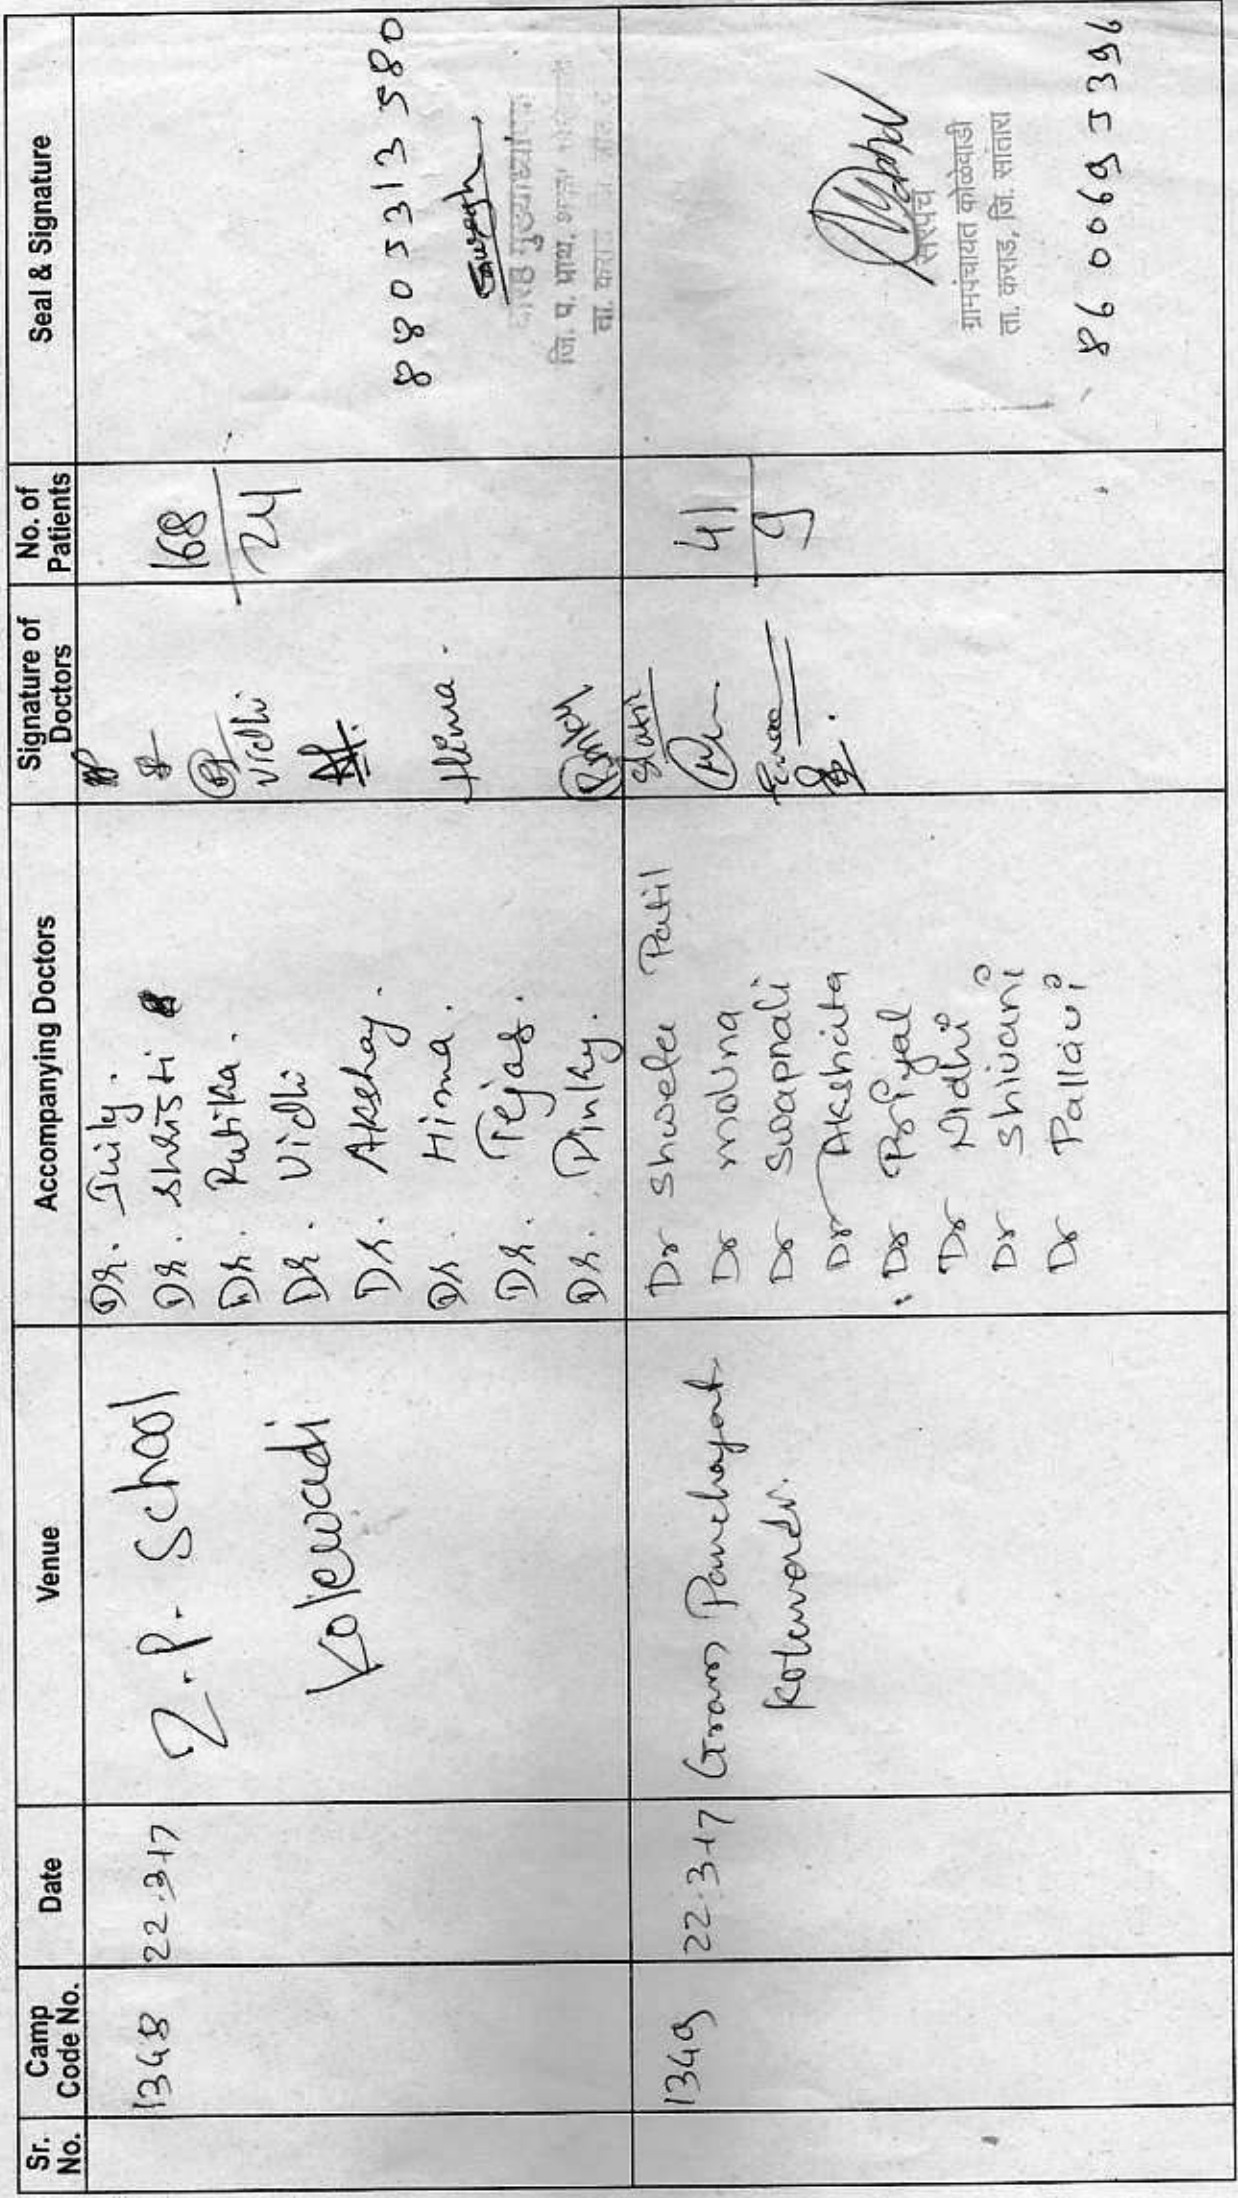 Sr. No.
Camp Code No.
Date
Venue
Accompanying Doctors
Signature of Doctors
No. of Patients
Seal & Signature
1348
22.3.17
Z.P. School
Kolewadi
Dr.
Dr. Shristi
Dr. Rutika.
Dr. Vidhi
Dr. Akshay.
Dr. Hima.
Dr. Tejas.
Dr. Pinky.
Vidhi
Hima.
168
24
8805313580
जि. प. प्राथ. शाळा
ता.
1349
22.3.17
Gram Panchayat
Kolewadi.
Dr Shweta Patil
Dr
Dr Swapnali
Dr Akshata
Dr Priyal
Dr Nidhi
Dr Shivani
Dr Pallavi
SPatil
41
9
सरपंच
ग्रामपंचायत कोळेवाडी
ता. कराड, जि. सातारा
8600695396